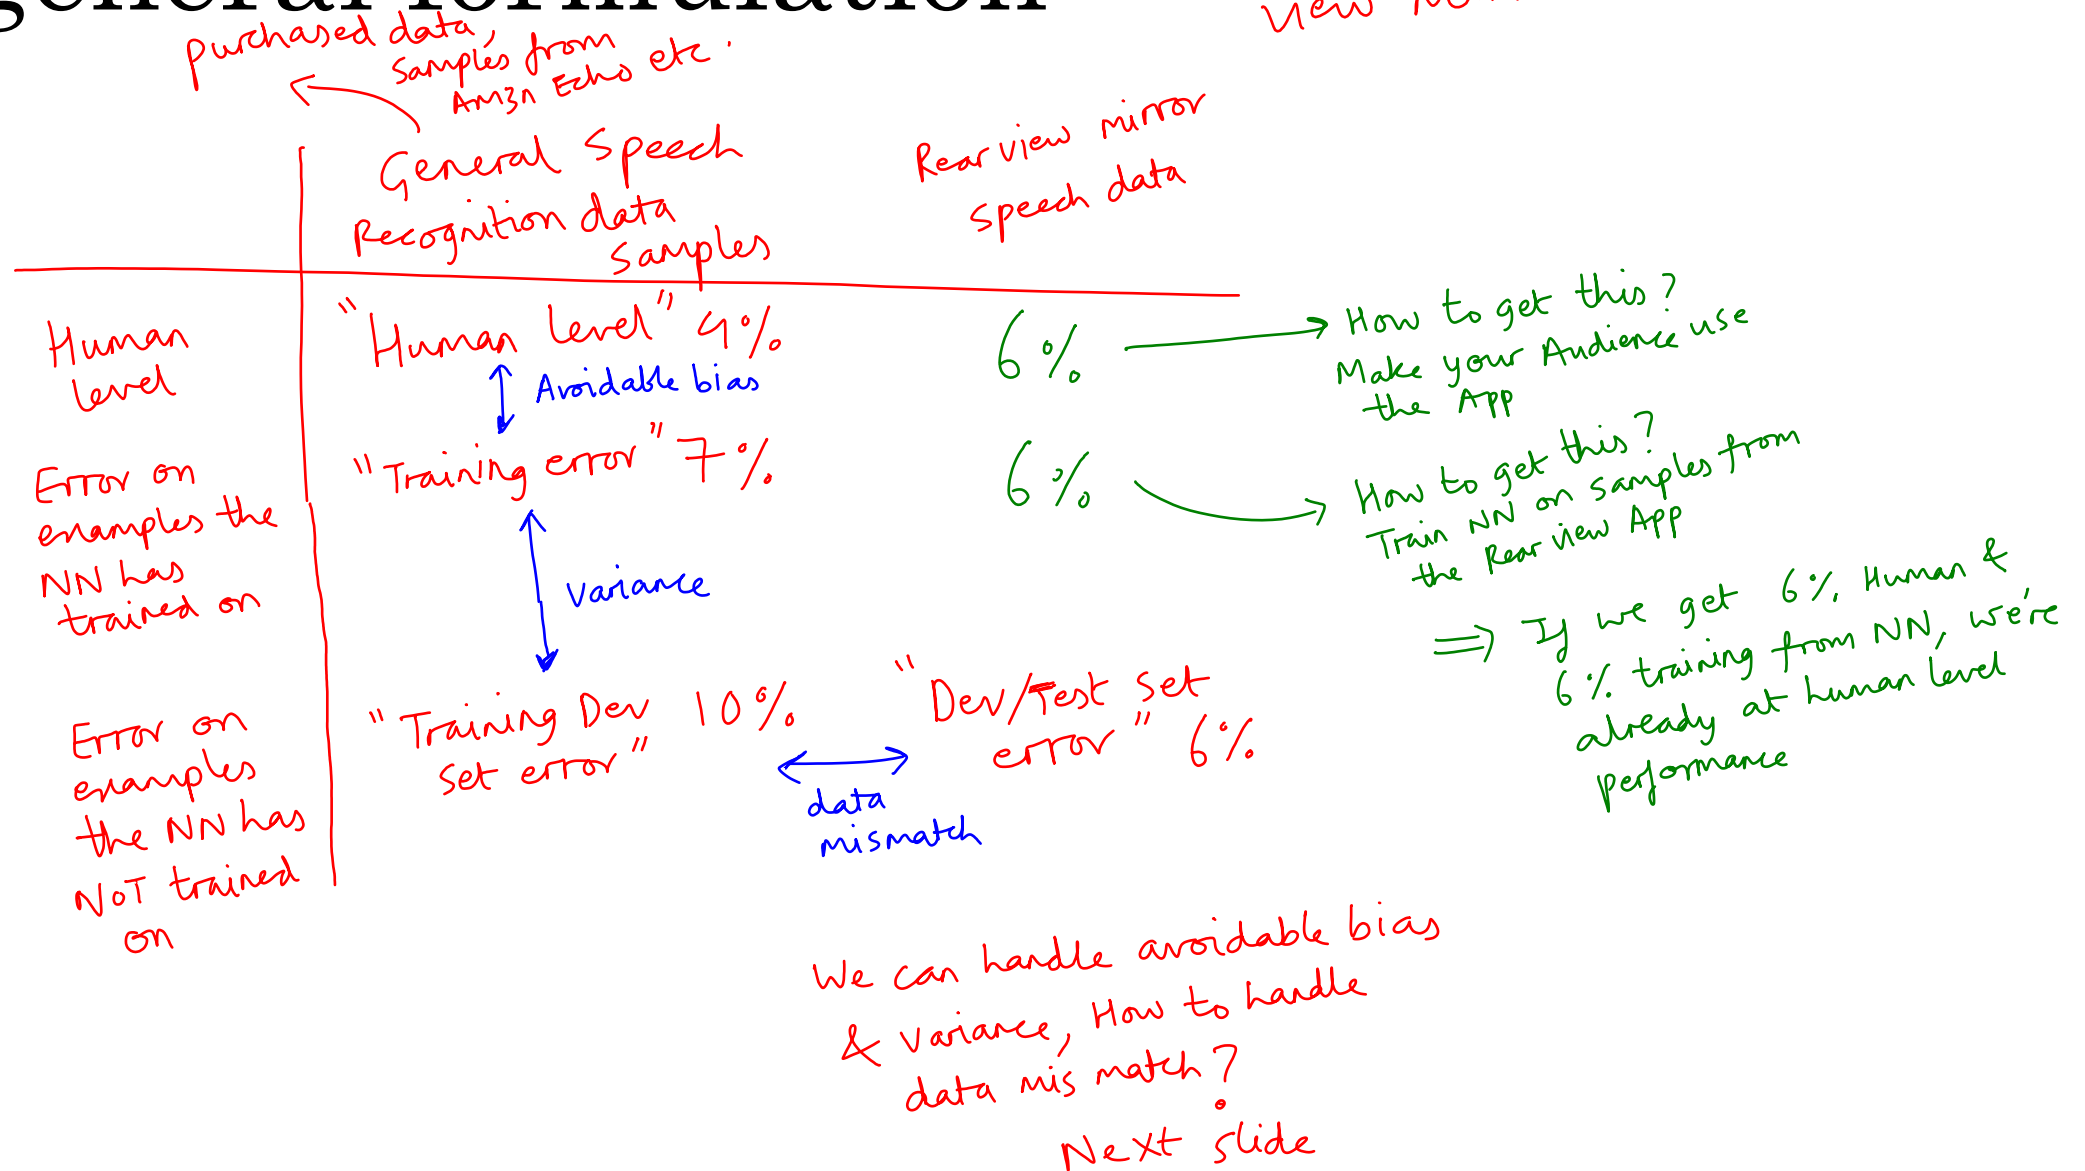 general formulation
view
purchased data,
Samples from
Amzn Echo etc.
General Speech
Recognition data
Samples
Rear view mirror
speech data
Human
level
"Human level" 4%
6%
How to get this?
Make your Audience use
the App
Avoidable bias
Error on
examples the
NN has
trained on
"Training error" 7%
6%
How to get this?
Train NN on samples from
the Rear view App
Variance
⇒ If we get 6% Human &
6% training from NN, we're
already at human level
performance
Error on
examples
the NN has
NOT trained
on
"Training Dev 10%
set error"
"Dev/Test set
error" 6%
data
mismatch
We can handle avoidable bias
& variance, How to handle
data mis match?
Next slide